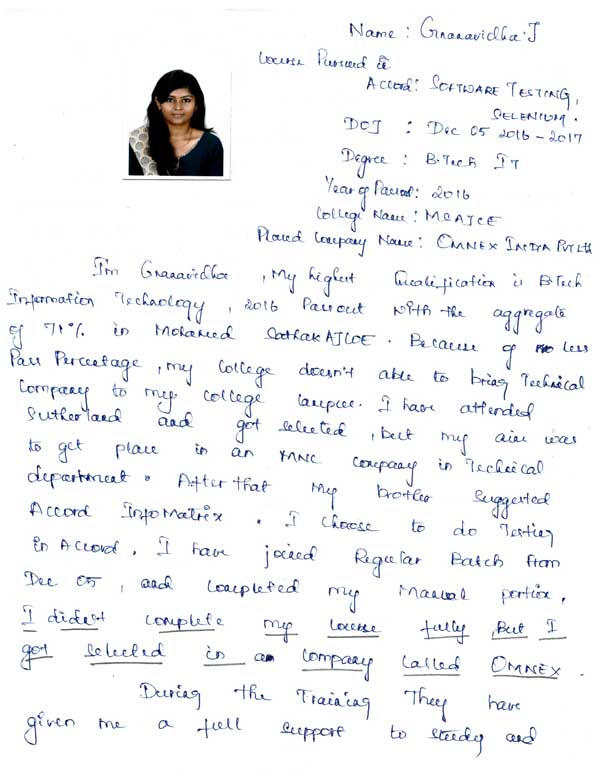 Name : Gnanavidha.J
Course Pursued @
Accord: SOFTWARE TESTING,
SELENIUM.
DOJ : Dec 05 2016 - 2017
Degree : B.Tech IT
Year of Passout: 2016
College Name: MSAJCE
Placed Company Name: OMNEX INDIA PVT Ltd
I'm Gnanavidha , My highest Qualification is B.Tech
Information Technology , 2016 Passout with the aggregate
of 71% in Mohamed Sathak AJCOE. Because of less
Pass Percentage , my college doesn't able to bring Technical
Company to my college campus. I have attended
Sutherland and got selected , but my aim was
to get place in an MNC company in Technical
department. After that My brother suggested
Accord InfoMatrix . I choose to do Testing
in Accord. I have joined Regular Batch from
Dec 05 , and completed my Manual portion,
I didn't complete my course fully , But I
got selected in a company called OMNEX.
During the Training They have
given me a full support to study and